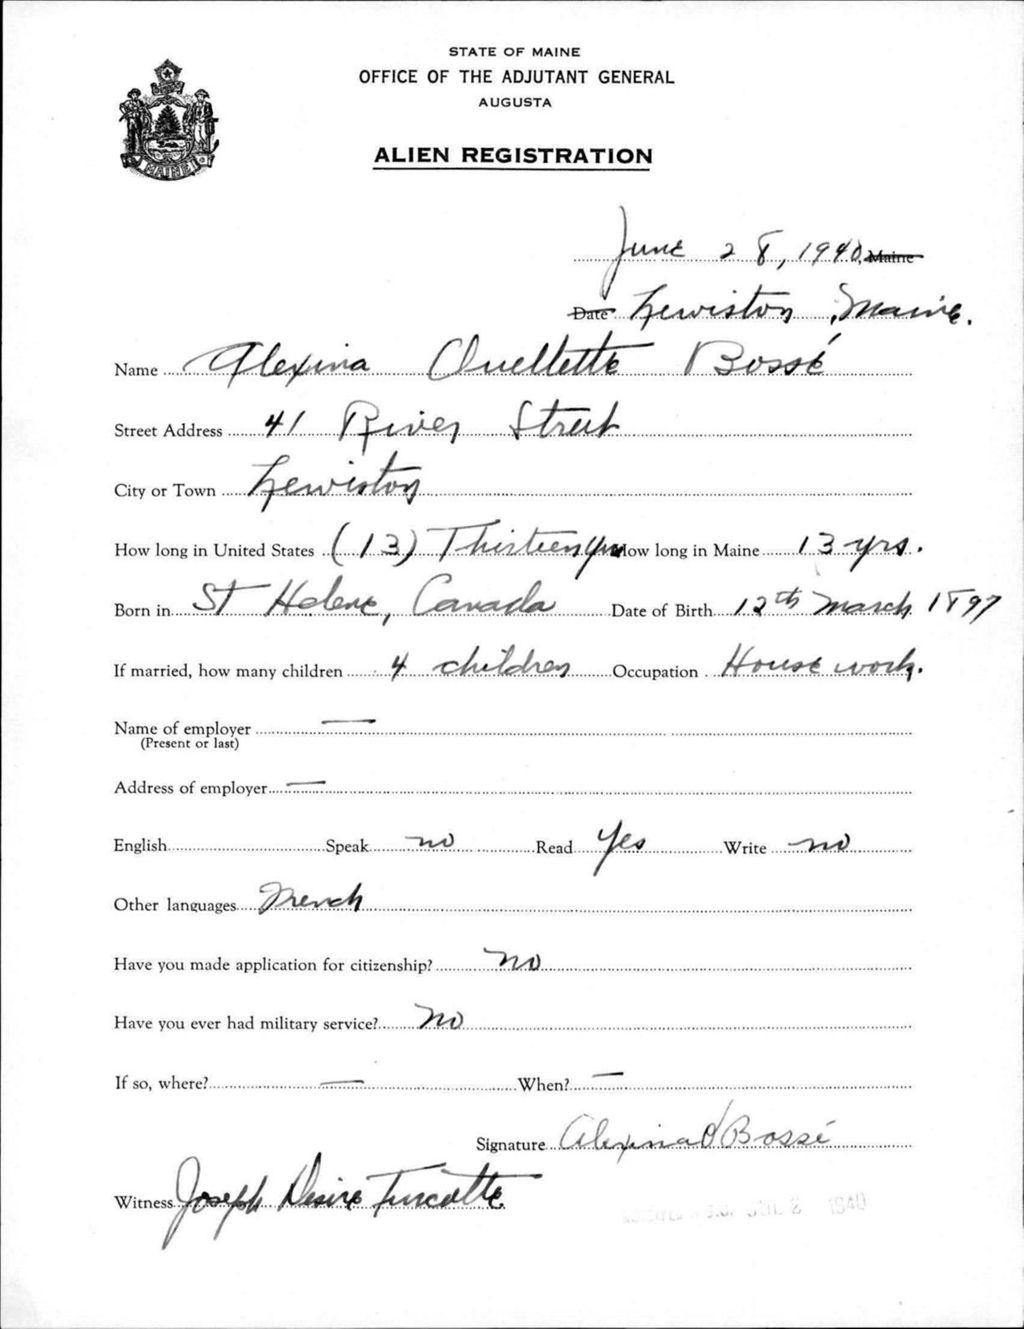 STATE OF MAINE
OFFICE OF THE ADJUTANT GENERAL
AUGUSTA
ALIEN REGISTRATION
MAINE
June 28, 1940, Maine
Date Lewiston, Maine.
Name Alexina Ouellette Bossé
Street Address 41 River Street
City or Town Lewiston
How long in United States (13) Thirteen yrs How long in Maine 13 yrs.
Born in St Helene, Canada Date of Birth 12th March 1897
If married, how many children 4 children Occupation House work.
Name of employer —
(Present or last)
Address of employer —
English Speak no Read Yes Write no
Other languages French
Have you made application for citizenship? no
Have you ever had military service? no
If so, where? — When? —
Signature Alexina O Bossé
Witness Joseph Desire Turcotte
JUL 2 1940